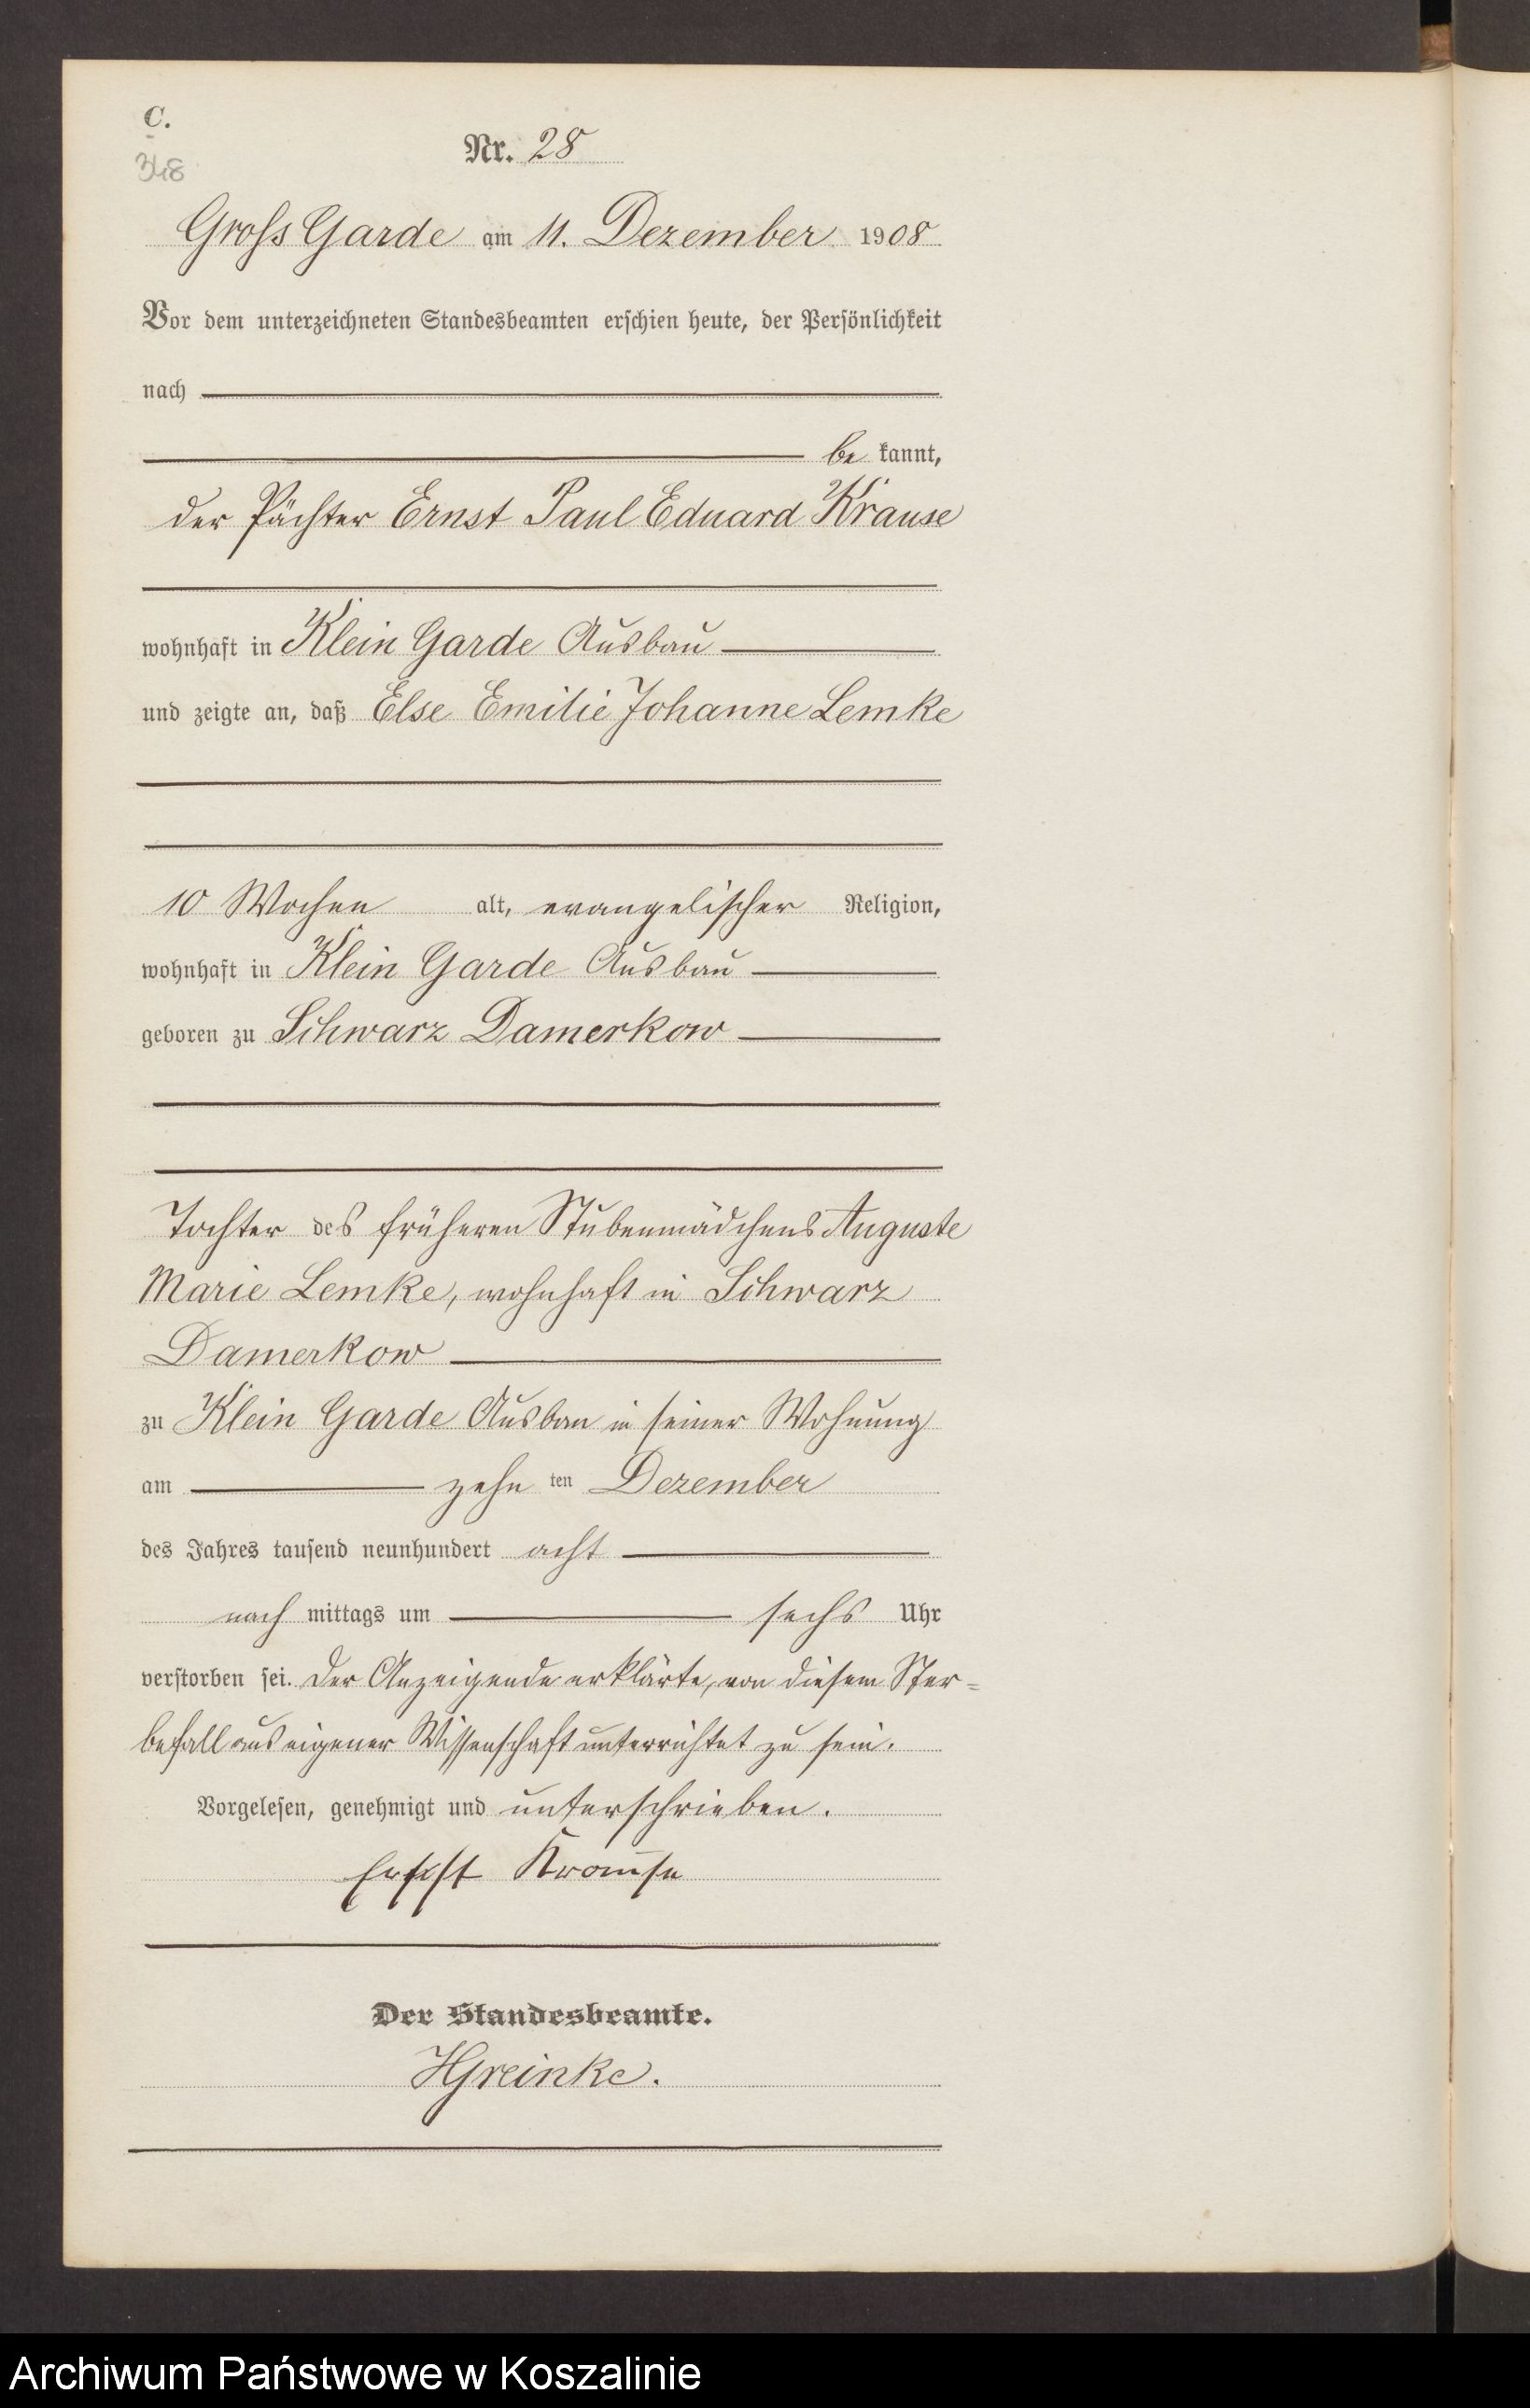 C.
348
Nr. 28
Gross Garde am 11. Dezember 1908
Vor dem unterzeichneten Standesbeamten erschien heute, der Persönlichkeit
nach
be kannt,
der Pächter Ernst Paul Eduard Krause
wohnhaft in Klein Garde Ausbau
und zeigte an, daß Else Emilie Johanne Lemke
10 Wochen alt, evangelischer Religion,
wohnhaft in Klein Garde Ausbau
geboren zu Schwarz Damerkow
Tochter des früheren Stubenmädchens Auguste
Marie Lemke, wohnhaft in Schwarz
Damerkow
zu Klein Garde Ausbau in seiner Wohnung
am zehn ten Dezember
des Jahres tausend neunhundert acht
nach mittags um sechs Uhr
verstorben sei. Der Anzeigende erklärte, von diesem Ster=
befall aus eigener Wissenschaft unterrichtet zu sein.
Vorgelesen, genehmigt und unterschrieben.
Ernst Krause
Der Standesbeamte.
HGreinke.
Archiwum Państwowe w Koszalinie